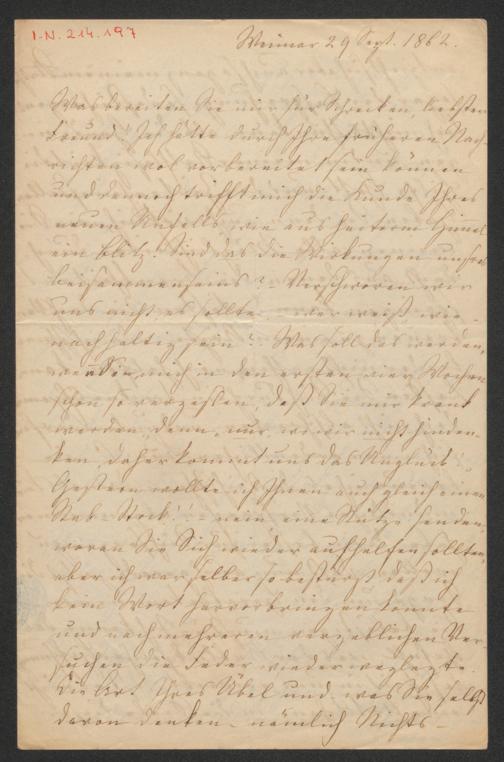 I.N. 214.197
Weimar 29 Sept. 1862.
Was bereiten Sie mir für Schrecken, liebster
Freund! Ich hätte durch Ihre früheren Nach-
richten wol vorbereitet sein können
und dennoch trifft mich die Kunde Ihres
neuen Unfalls wie aus heiterm Himel
ein Blitz. Sind das die Wirkungen unsres
Beisammenseins? - Verschworen wir
uns nicht es sollte wer weiß wie
nachhaltig sein? Was soll das werden,
wenn Sie mich in den ersten vier Wochen
schon so vergessen, daß Sie mir krank
werden, denn nur wo wir nicht hinden-
ken, daher kommt uns das Unglück!
Gestern wollte ich Ihnen auch gleich einen
Stab - Stock! - nein eine Stütze senden,
woran Sie Sich wieder aufhelfen sollten,
aber ich war selber so bestürzt daß ich
kein Wort hervorbringen konnte
und nach mehreren vergeblichen Ver-
suchen die Feder wieder weglegte.
Die Art Ihres Übel und was Sie selbst
davon denken - nämlich Nichts -